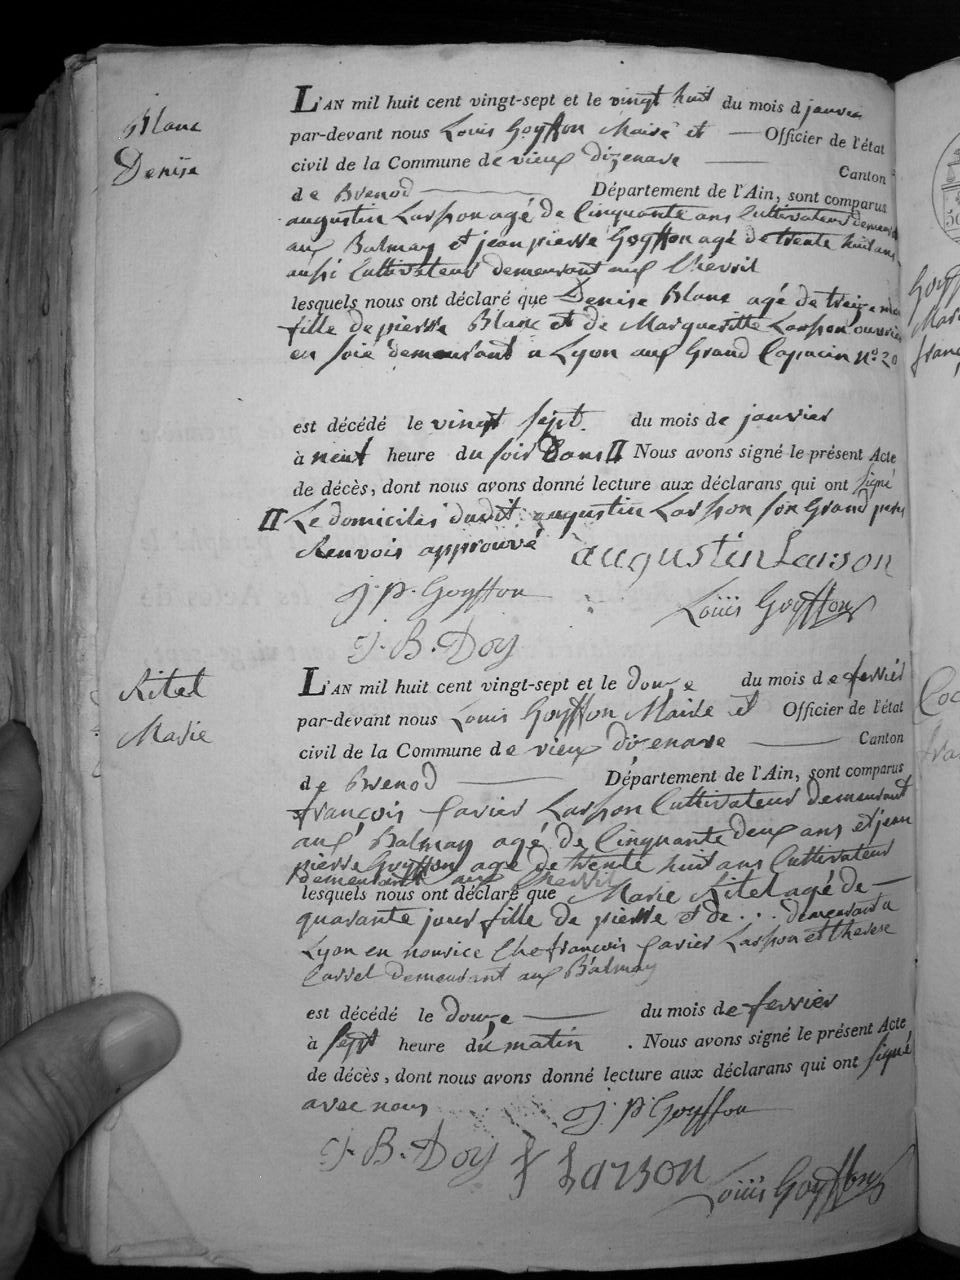 Blanc
Denise
L'AN mil huit cent vingt-sept et le vingt huit du mois d janvier
par-devant nous Louis Goyffon Maire et — Officier de l'état
civil de la Commune de vieux dizenave — Canton
de Brenod — Département de l'Ain, sont comparus
augustin Lasson agé de Cinquante ans Cultivateur demeurant
aux Balmay et jean pierre Goyffon agé de trente huit ans
aussi Cultivateur demeurant aux Chevril
lesquels nous ont déclaré que Denise Blanc agé de treize mois
fille de pierre Blanc et de Margueritte Lasson ouvrier
en soie demeurant a Lyon aux Grand Capucin N° 20
est décédé le vingt sept du mois de janvier
à neuf heure du soir Dans II Nous avons signé le présent Acte
de décès, dont nous avons donné lecture aux déclarans qui ont signé
II Le domicile dudit augustin Lasson son Grand pere
Renvois approuvé augustin Larson
J. P. Goyffon Louis Goyffon
J. B. Doy
Ritel
Marie
L'AN mil huit cent vingt-sept et le douze du mois de fevrier
par-devant nous Louis Goyffon Maire et Officier de l'état
civil de la Commune de vieux dizenave — Canton
de Brenod — Département de l'Ain, sont comparus
françois Xavier Lasson Cultivateur demeurant
aux Balmay agé de Cinquante deux ans et jean
pierre Goyffon agé de trente huit ans Cultivateur
demeurant aux Chevril
lesquels nous ont déclaré que Marie Ritel agé de —
quarante jour fille de pierre et de ... demeurant a
Lyon en nourice Che françois Xavier Lasson et therese
Carrel demeurant aux Balmay
est décédé le douze — du mois de fevrier
à sept heure du matin . Nous avons signé le présent Acte
de décès, dont nous avons donné lecture aux déclarans qui ont signé
avec nous J. P. Goyffon
J. B. Doy f Larson Louis Goyffon